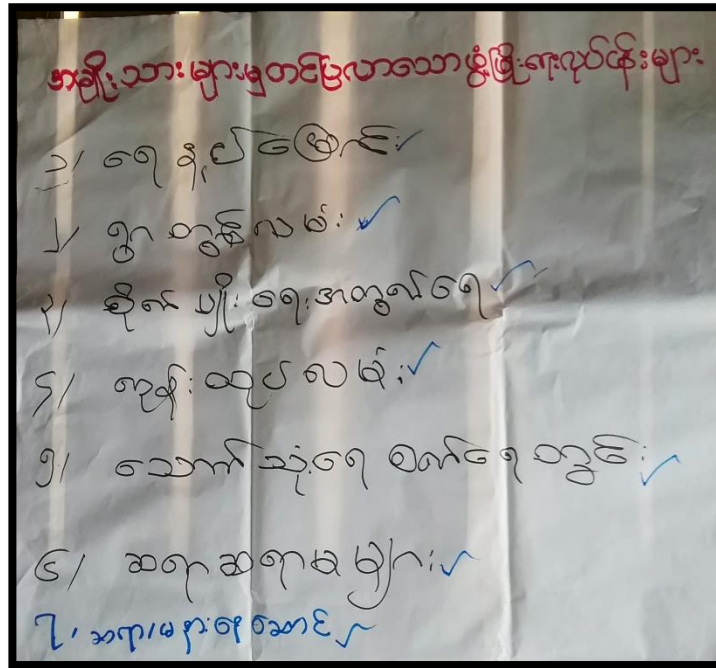 အမျိုးသားများမှတင်ပြလာသောဖွံ့ဖြိုးရေးလုပ်ငန်းများ
၁/ ရေနုတ်မြောင်း ✓
၂/ ရွာတွင်းလမ်း ✓
၃/ စိုက်ပျိုးရေးအတွက်ရေ ✓
၄/ ကုန်းထုတ်လမ်း ✓
၅/ သောက်သုံးရေ စက်ရေတွင်း ✓
၆/ ဆရာဆရာမများ ✓
၇/ ဆရာမများနေဆောင် ✓